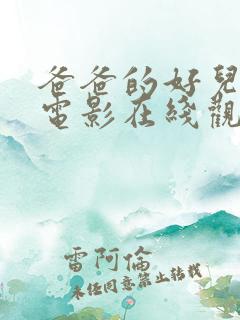 爸爸的好兒
電影在綫觀
雷阿倫
未经同意禁止转载